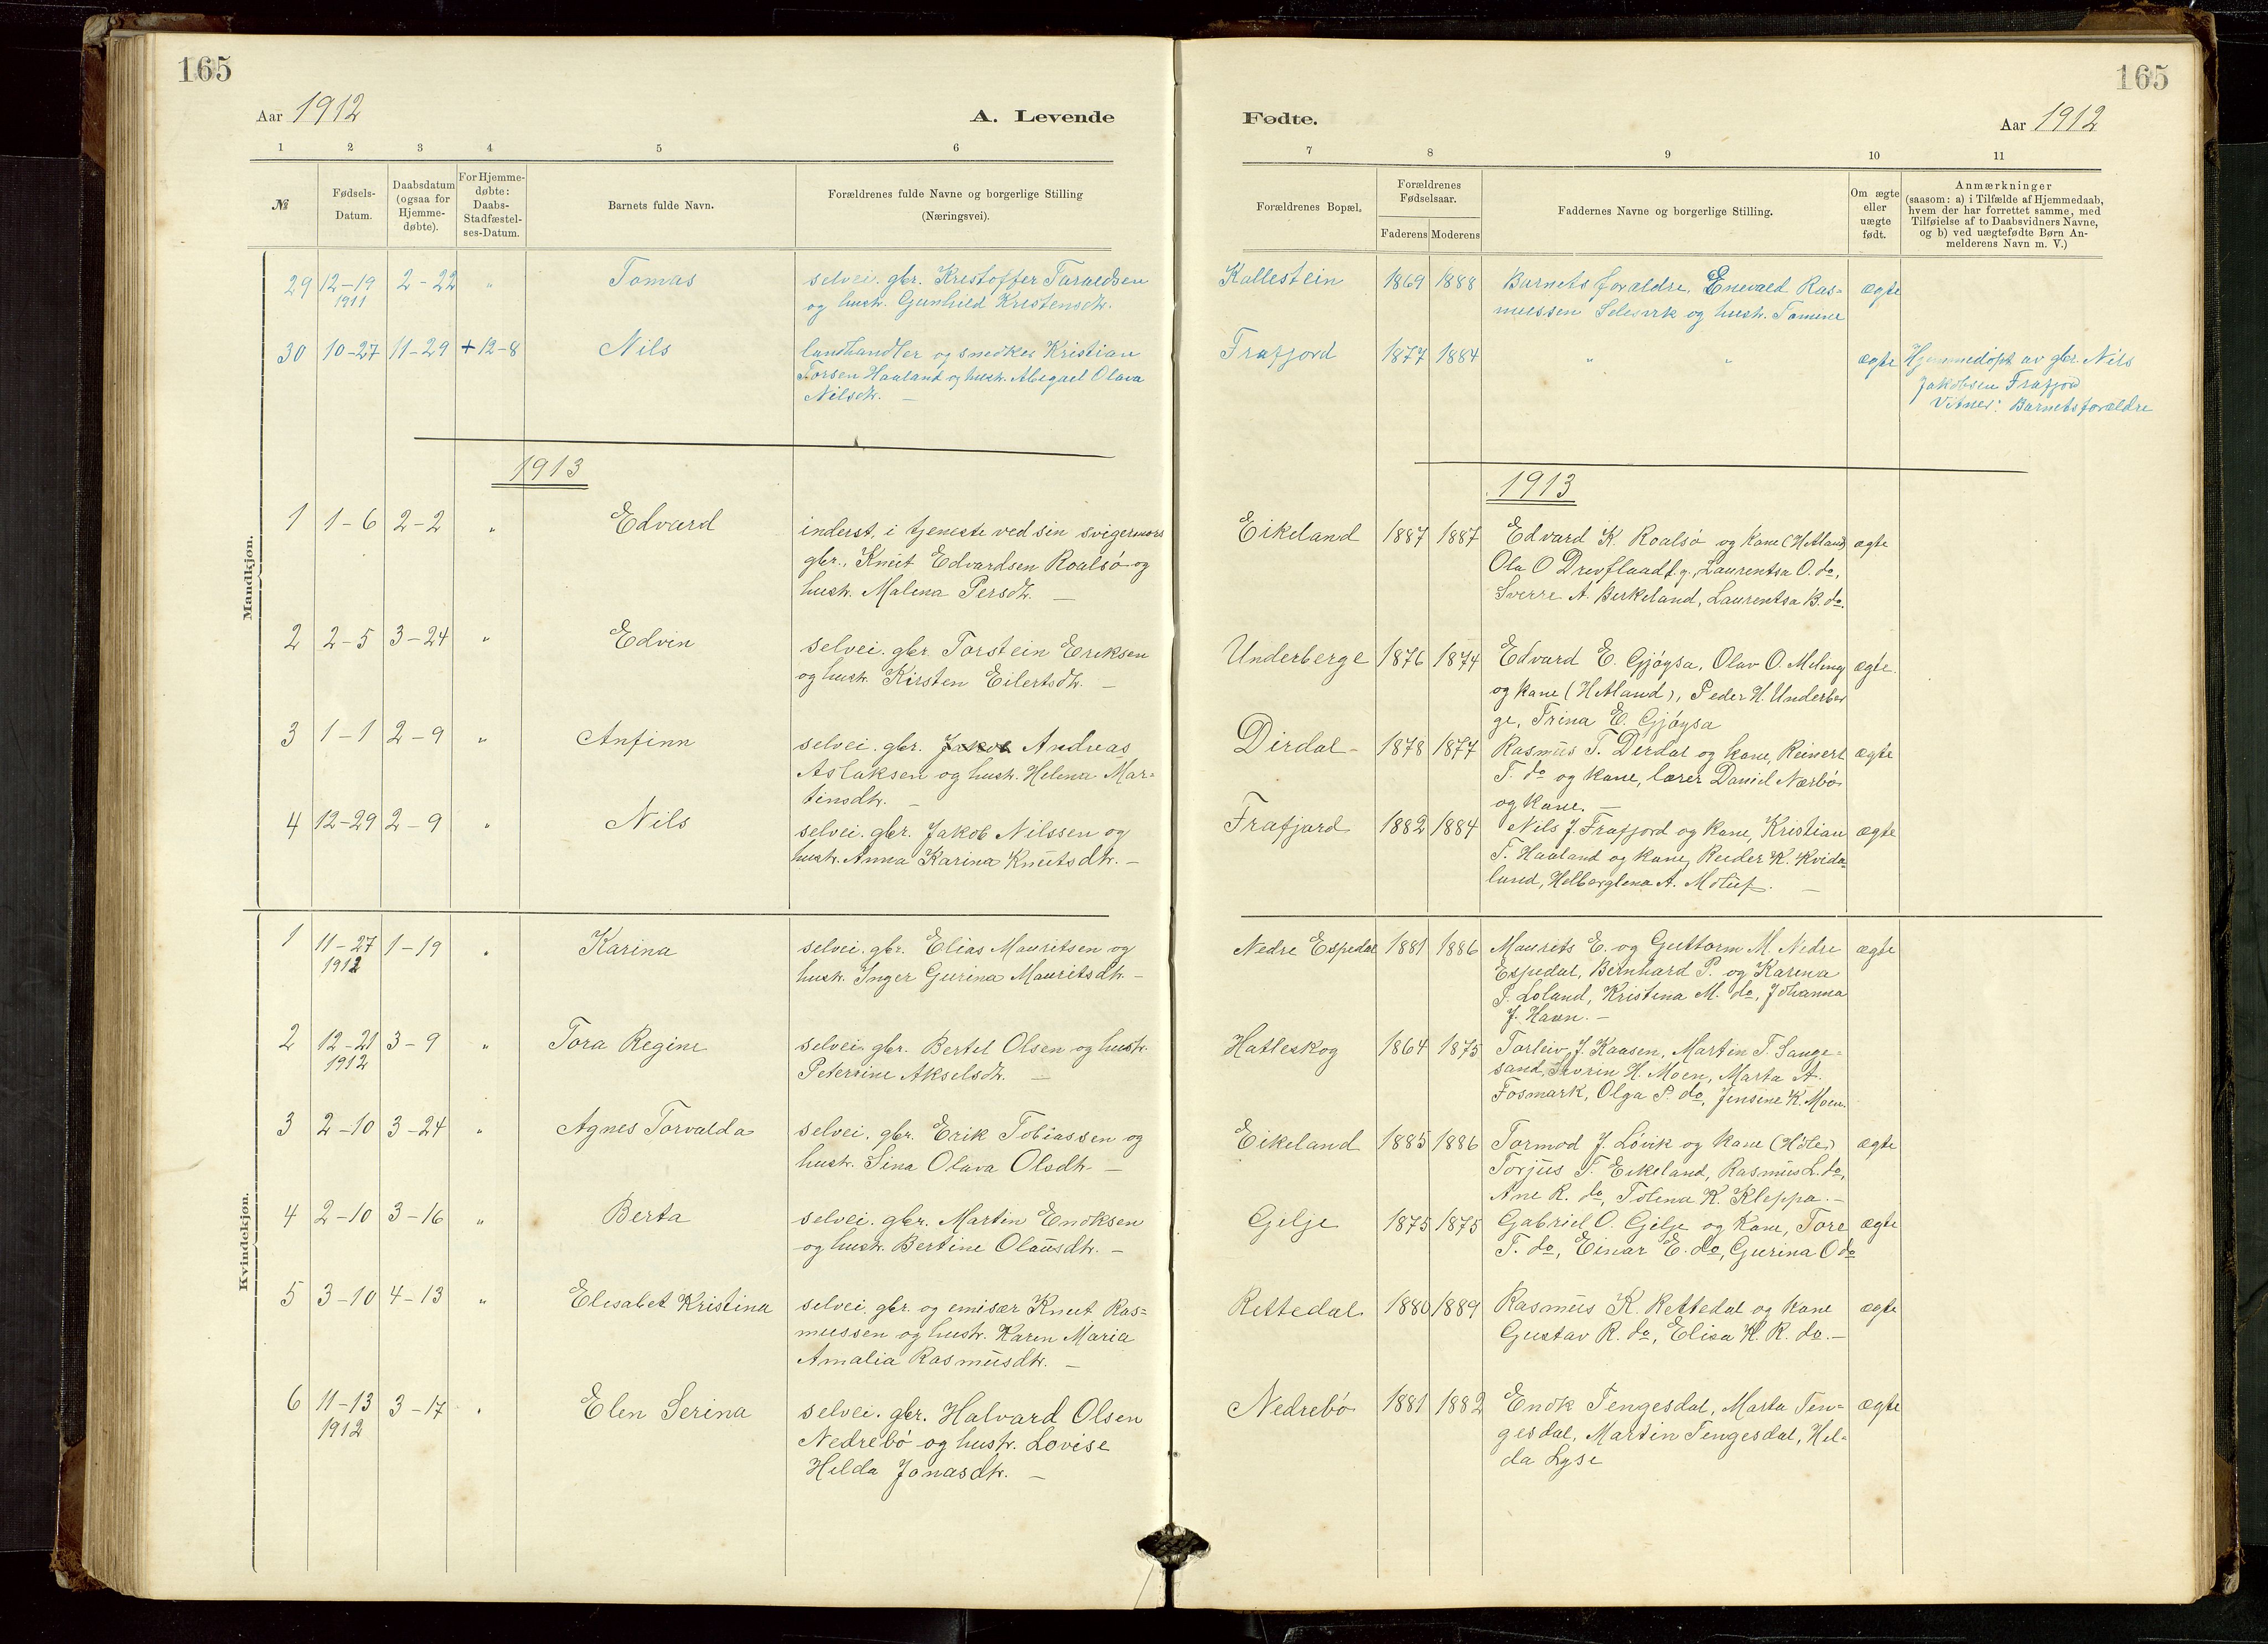 165
165
Aar 1912
A. Levende
Fødte.
Aar 1912
1 2 3 4 5 6
7 8 9 10 11
№
Fødsels-
Datum.
Daabsdatum
(ogsaa for
Hjemme-
døbte).
For Hjemme-
døbte:
Daabs-
Stadfæstel-
ses-Datum.
Barnets fulde Navn.
Forældrenes fulde Navne og borgerlige Stilling
(Næringsvei).
Forældrenes Bopæl.
Forældrenes
Fødselsaar.
Faderens Moderens
Faddernes Navne og borgerlige Stilling.
Om ægte
eller
uægte
født.
Anmærkninger
(saasom: a) i Tilfælde af Hjemmedaab,
hvem der har forrettet samme, med
Tilføielse af to Daabsvidners Navne,
og b) ved uægtefødte Børn An-
melderens Navn m. V.)
Mandkjøn.
29 12-19 2-22 " Tomas
1911
selvei. gbr. Kristoffer Taraldsen
og hustr. Gunhild Kristensdtr.
Kallestein 1869 1888
Barnets forældre, Enevald Ras=
mussen Selesvik og hustr. Tomine
ægte
30 10-27 11-29 +12-8 Nils
landhandler og snedker Kristian
Torsen Haaland og hustr. Abigael Olava
Nilsdtr. —
Frafjord 1877 1884 " "
ægte
Hjemmedøpt av gbr. Nils
Jakobsen Frafjord
Vitner: Barnets forældre
1913
1913
1 1-6 2-2 " Edvard
inderst, i tjeneste ved sin svigermors
gbr., Knut Edvardsen Roalsø og
hustr. Malena Persdtr. —
Eikeland 1887 1887
Edvard K. Roalsø og kane (Hetland)
Ola O Drevflaadt.g., Laurentsa O. do,
Sverre A. Birkeland, Laurentsa B. do.
ægte
2 2-5 3-24 " Edvin
selvei. gbr. Torstein Eriksen
og hustr. Kirsten Eilertsdtr. —
Underberge 1876 1874
Edvard E. Gjøysa, Olav O. Meling
og kane (Hetland), Peder H. Underber
ge, Trina E. Gjøysa
ægte.
3 1-1 2-9 " Anfinn
selvei. gbr. Jakob Andreas
Aslaksen og hustr. Helena Mar=
tinsdtr. —
Dirdal - 1878 1877
Rasmus T. Dirdal og kane, Reinert
T. do og kane, lærer Daniel Nærbø
og kane. —
ægte
4 12-29 2-9 " Nils
selvei. gbr. Jakob Nilssen og
hustr. Anna Karina Knutsdtr. —
Frafjord 1882 1884
Nils J. Frafjord og kane, Kristian
T. Haaland og kane, Reider K. Kvida-
lund, Helberglena A. Møluf. —
ægte
Kvindekjøn.
1 11-27 1-19 " Karina
1912
selvei. gbr. Elias Mauritsen og
hustr. Inger Gurina Mauritsdtr —
Nedre Espedal 1881 1886
Maurits E. og Guttorm M. Nedre
Espedal, Bernhard P. og Karina
P. Loland, Kristina M. do, Johanna
J. Havn. —
ægte
2 12-21 3-9 " Tora Regine
1912
selvei. gbr. Bertel Olsen og hustr.
Peterine Akselsdtr. —
Hatleskog 1864 1875
Torleiv J. Kaasen, Martin T. Sange-
sand, Severin H. Moen, Marta A.
Fosmark, Olga P. do, Jensine K. Moen.
3 2-10 3-24 " Agnes Torvalda
selvei. gbr. Erik Tobiassen og
hustr. Sina Olava Olsdtr. —
Eikeland 1885 1886
Tormod J. Løvik og kane (Høle)
Torjus T. Eikeland, Rasmus L. do,
Ane R. do, Tolena K. Kleppa. —
ægte
4 2-10 3-16 " Berta
selvei. gbr. Martin Enoksen
og hustr. Bertine Olausdtr. —
Gilje 1875 1875
Gabriel O. Gilje og kane, Tore
T. do, Einar E. do, Gurina O do
ægte
5 3-10 4-13 " Elisabet Kristina
selvei, gbr. og emisær Knut Ras=
mussen og hustr. Karen Maria
Amalia Rasmusdtr. —
Rettedal 1880 1889
Rasmus K. Rettedal og kane
Gustav R. do, Elisa K. R. do. —
ægte
6 11-13 3-17 " Elen Serina
1912
selvei. gbr. Halvard Olsen
Nedrebø og hustr. Lovise
Helda Jonasdtr. —
Nedrebø 1881 1882
Enok Tengesdal, Marta Ten=
gesdal, Martin Tengesdal, Hel=
da Lyse
ægte